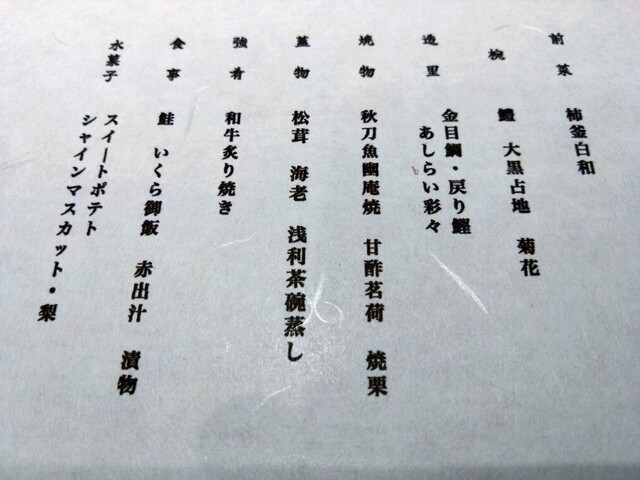 前菜 柿釜白和
椀 鱧 大黒占地 菊花
造里 金目鯛・戻り鰹
あしらい彩々
焼物 秋刀魚幽庵焼 甘酢茗荷 焼栗
蓋物 松茸 海老 浅利茶碗蒸し
強肴 和牛炙り焼き
食事 鮭 いくら御飯 赤出汁 漬物
水菓子 スイートポテト
シャインマスカット・梨